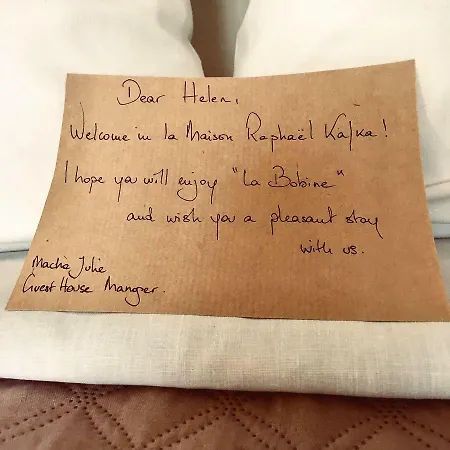 Dear Helen,
Welcome in la Maison Raphaël Kafka!
I hope you will enjoy "La Bobine"
and wish you a pleasant stay
with us.
Macha Julie
Guest House Manager.